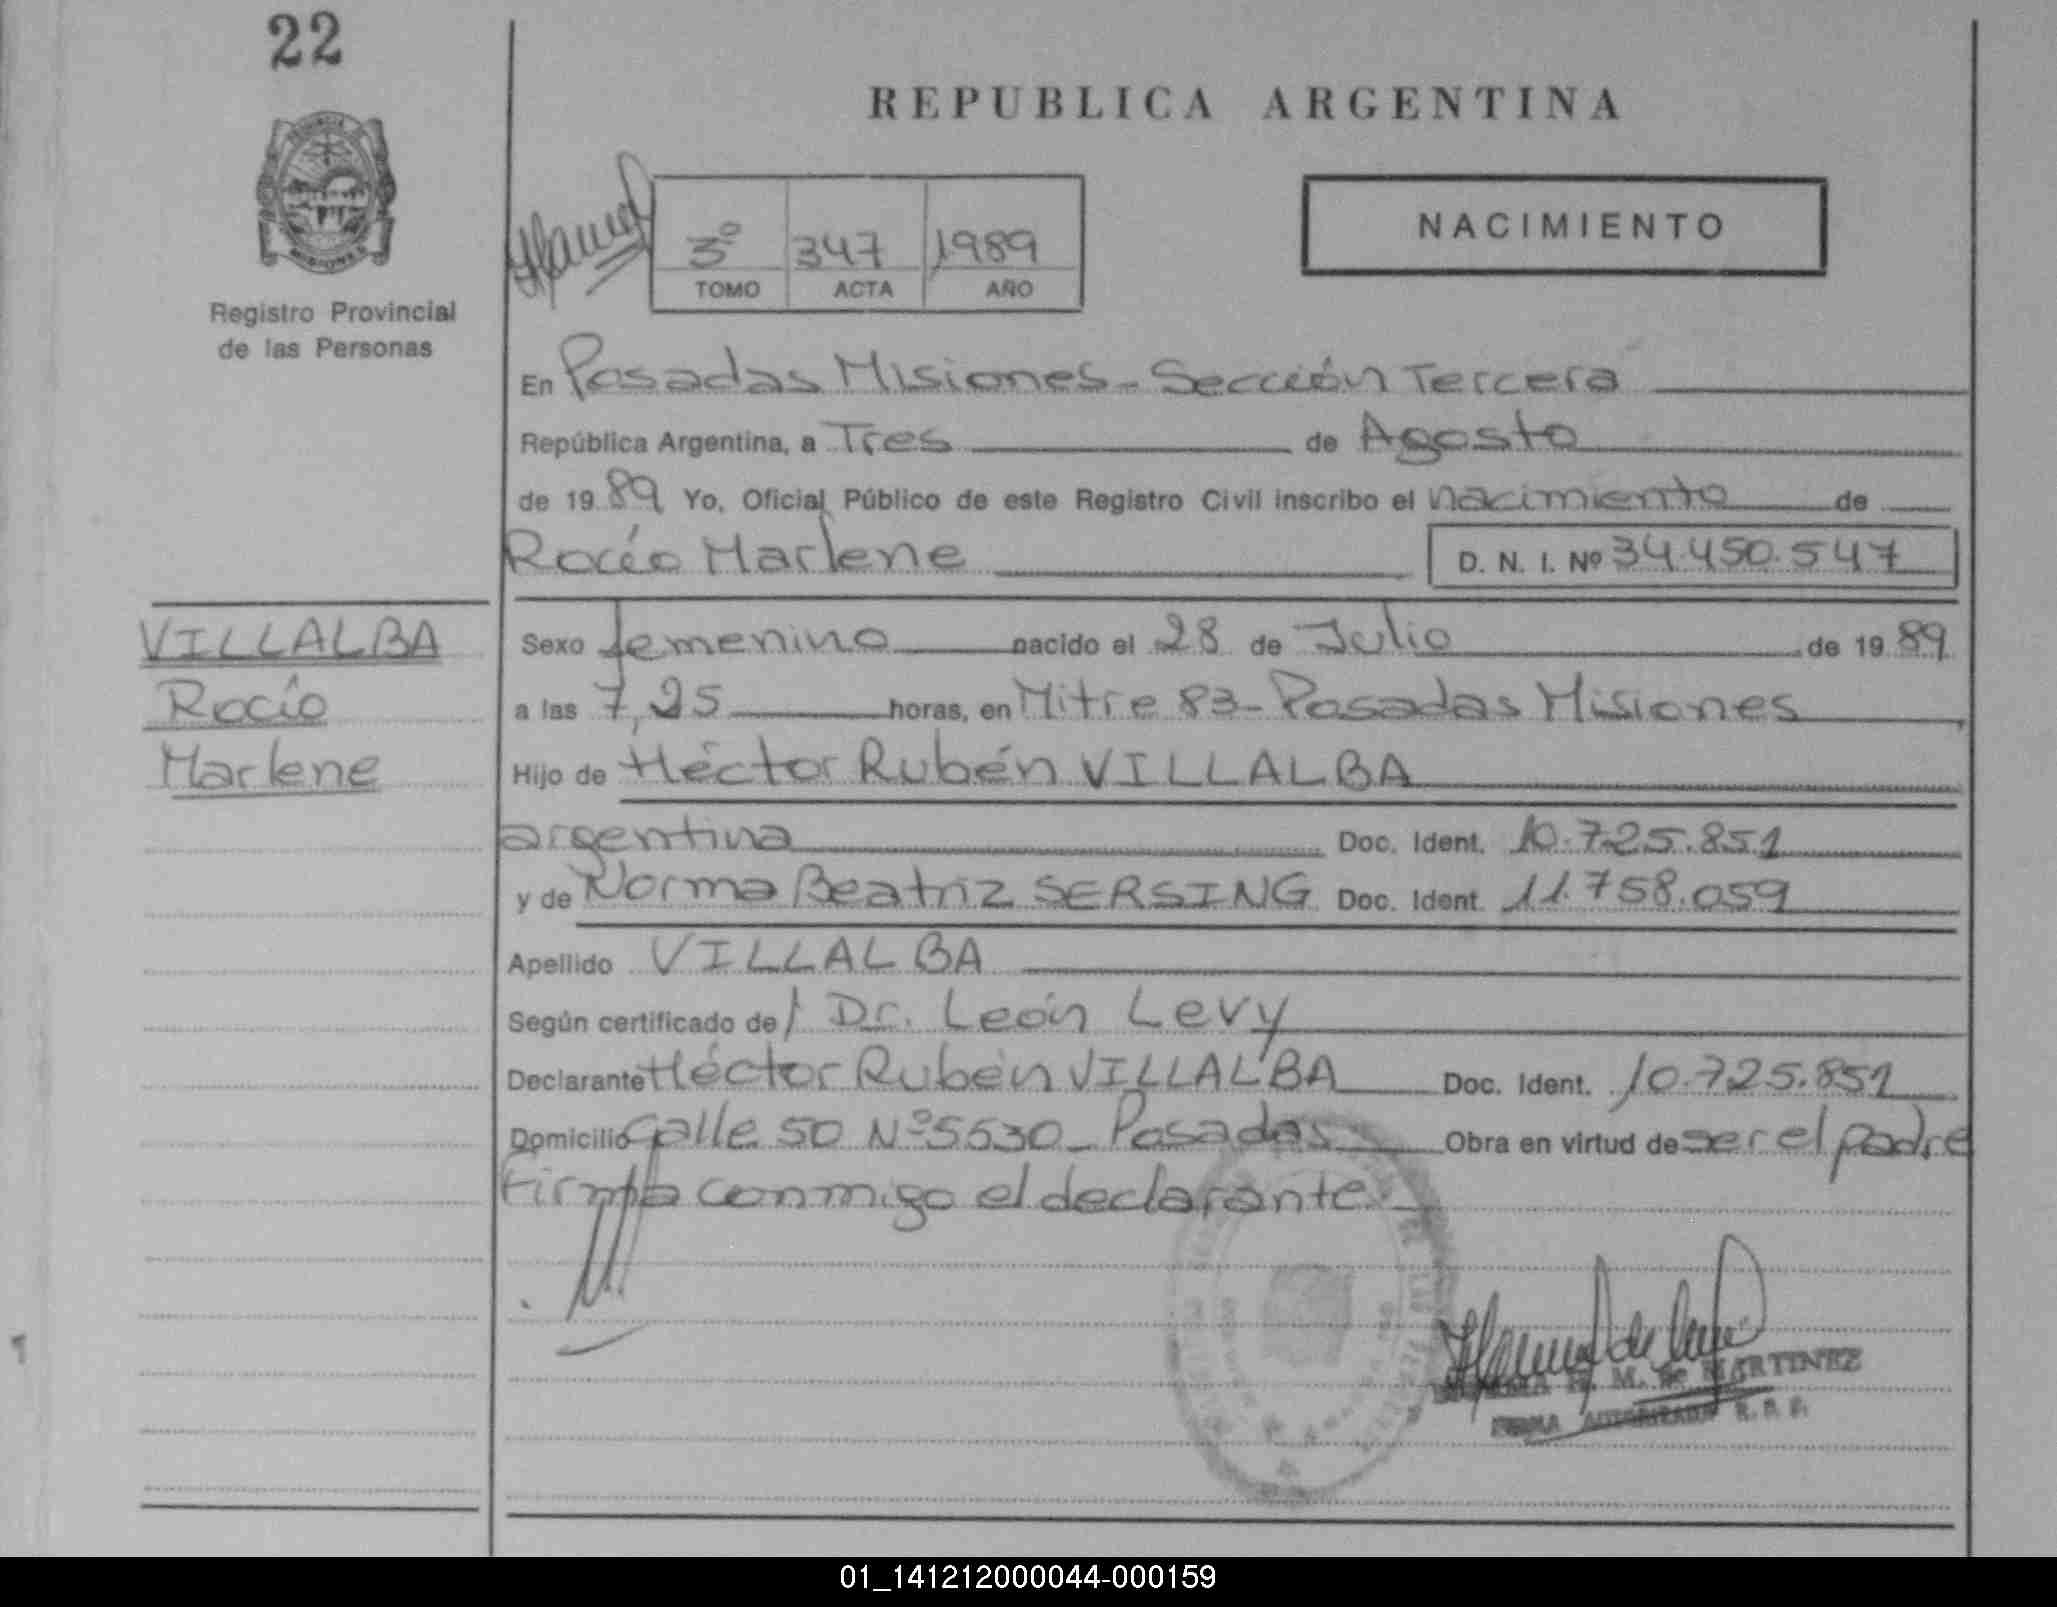 22
REPUBLICA ARGENTINA
NACIMIENTO
3º 347 1989
TOMO ACTA AÑO
MISIONES
Registro Provincial
de las Personas
En Posadas Misiones - Sección Tercera
República Argentina, a Tres de Agosto
de 1989 Yo, Oficial Público de este Registro Civil inscribo el nacimiento de
Rocío Marlene D. N. I. Nº 34.450.547
VILLALBA
Rocío
Marlene
Sexo femenino nacido el 28 de Julio de 1989
a las 7,25 horas, en Mitre 83 - Posadas Misiones
Hijo de Héctor Rubén VILLALBA
argentina Doc. Ident. 10.725.851
y de Norma Beatriz SERSING Doc. Ident. 11.758.059
Apellido VILLALBA
Según certificado de/ Dr. León Levy
Declarante Héctor Rubén VILLALBA Doc. Ident. 10.725.851
Domicilio Calle 50 Nº 5530 - Posadas Obra en virtud de ser el padre
Firma conmigo el declarante.-
M. de MARTINEZ
FIRMA AUTORIZADA R. P. P.
01_141212000044-000159